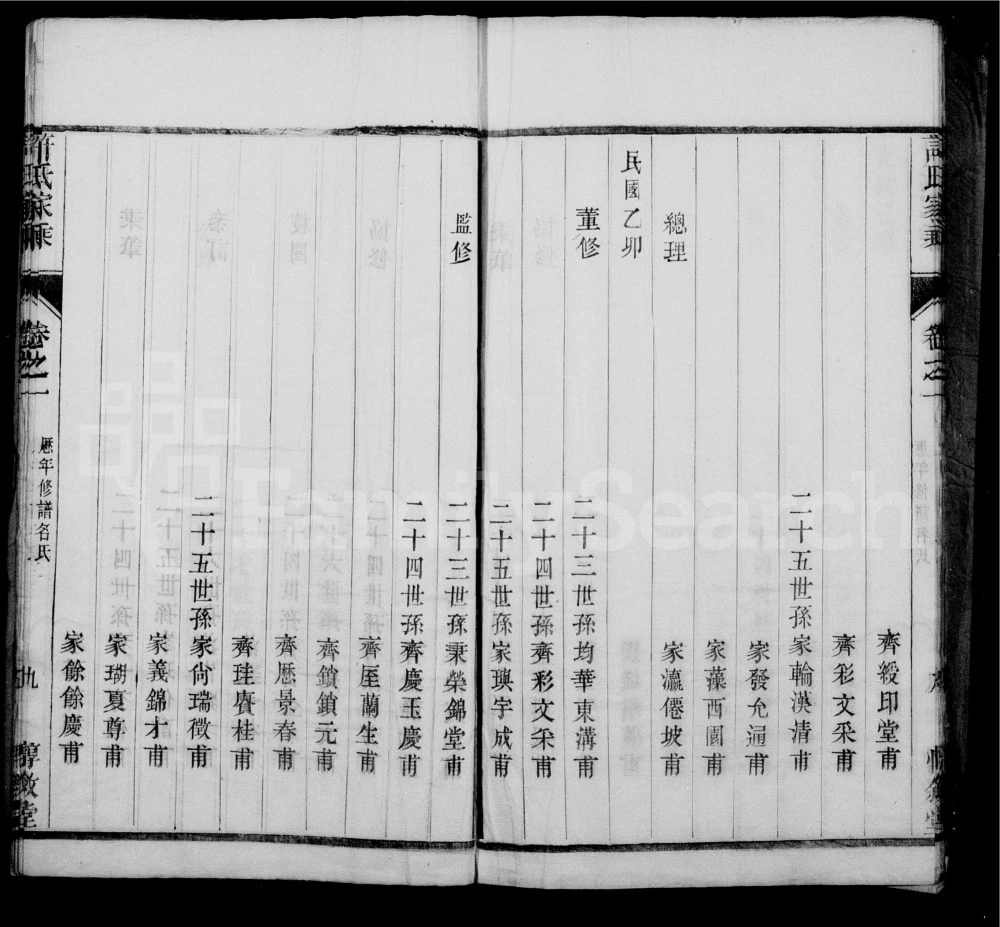 許氏家乘
卷之一
齊綬印堂甫
齊彩文采甫
二十五世孫家輪漢清甫
家發允逼甫
家藻西園甫
總理 家瀛僊坡甫
民國乙卯
董修 二十三世孫均華東溝甫
二十四世孫齊彩文采甫
二十五世孫家璵字成甫
監修 二十三世孫秉榮錦堂甫
二十四世孫齊慶玉慶甫
齊垕蘭生甫
齊鎖鎖元甫
齊歷景春甫
齊珪賡桂甫
二十五世孫家尙瑞徵甫
家義錦才甫
家瑚夏尊甫
家餘餘慶甫
許氏家乘
卷之一
歷年修譜名氏
九
惇敘堂
FamilySearch